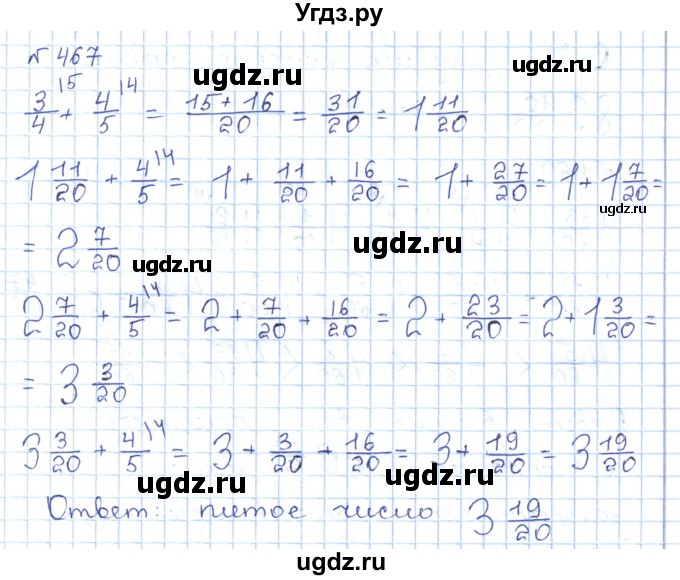 Угдз.ру
№ 467
3/4¹⁵ + 4/5¹⁴ = (15 + 16)/20 = 31/20 = 1 11/20
ugdz.ru ugdz.ru
1 11/20 + 4/5¹⁴ = 1 + 11/20 + 16/20 = 1 + 27/20 = 1 + 1 7/20 =
ugdz.ru
= 2 7/20
ugdz.ru ugdz.ru
2 7/20 + 4/5¹⁴ = 2 + 7/20 + 16/20 = 2 + 23/20 = 2 + 1 3/20 =
= 3 3/20
ugdz.ru ugdz.ru
3 3/20 + 4/5¹⁴ = 3 + 3/20 + 16/20 = 3 + 19/20 = 3 19/20
ugdz.ru ugdz.ru
Ответ: пятое число 3 19/20
ugdz.ru